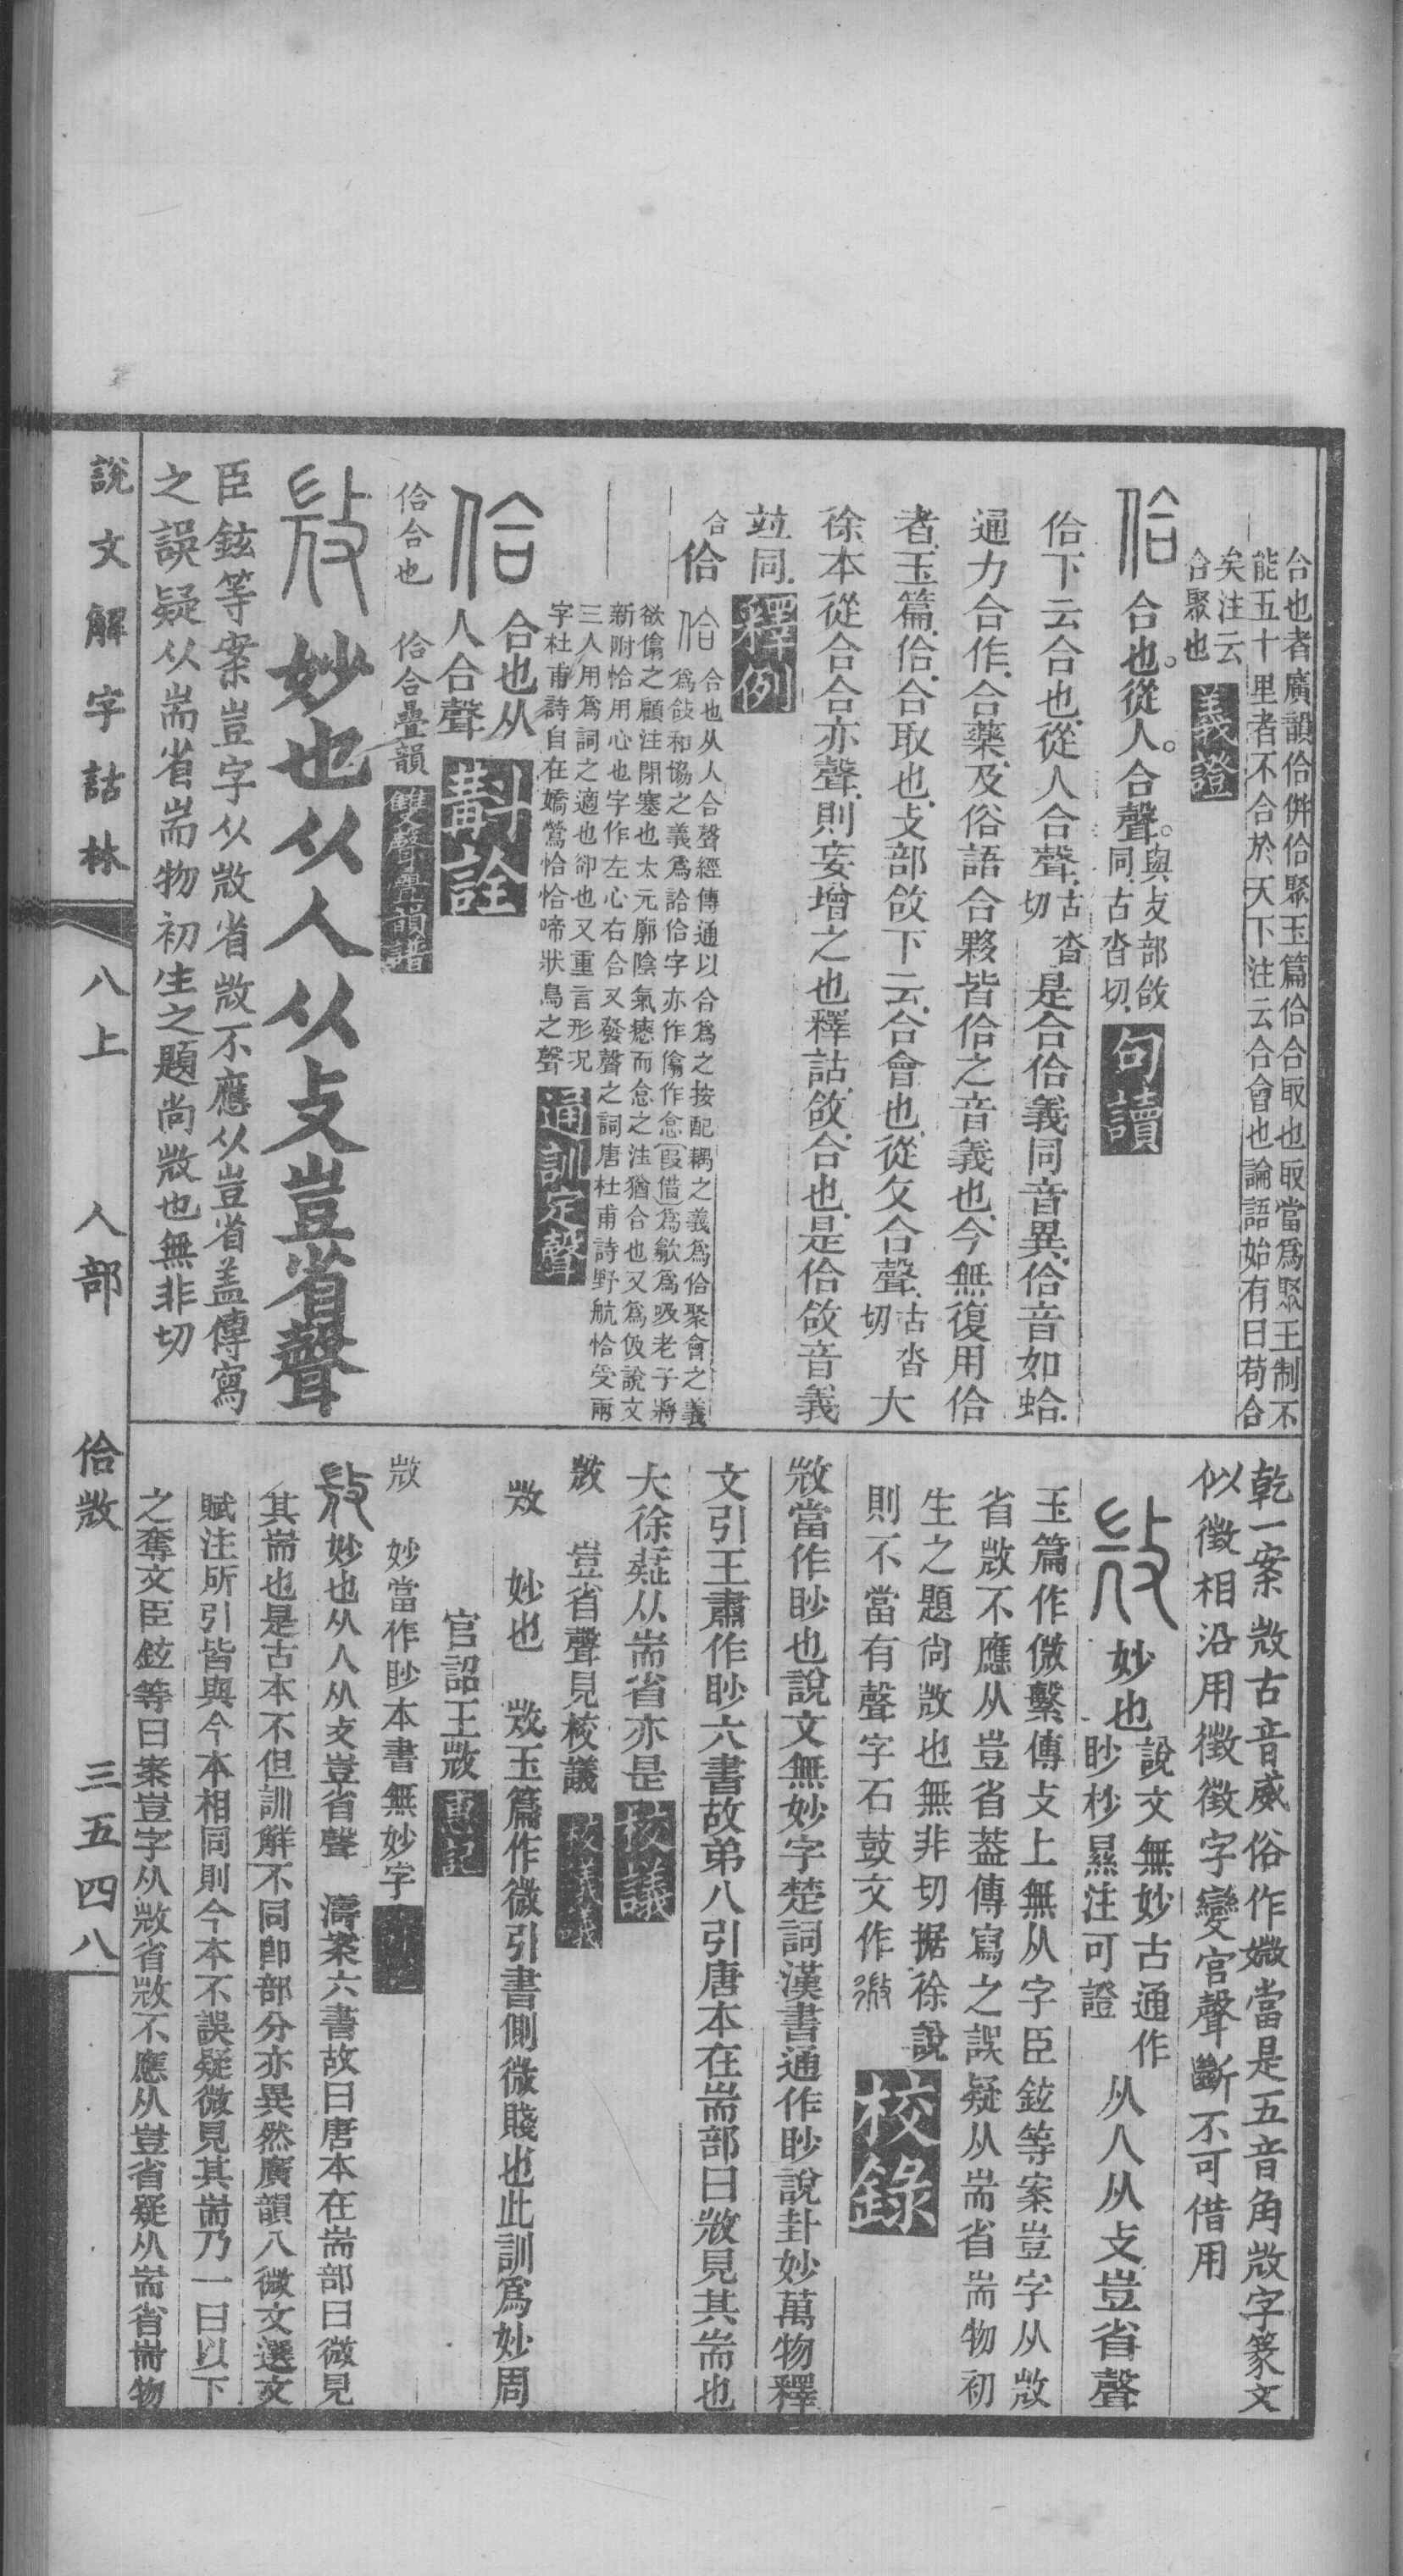 合也者廣韻佮併佮聚玉篇佮合取也取當爲聚王制不
能五十里者不合於天下注云合會也論語始有曰苟合
矣注云
合聚也
義證
佮 合也。從人。合聲。與攴部敆
同古沓切
句讀
佮下云合也從人合聲古沓
切
是合佮義同音異佮音如蛤
通力合作合藥及俗語合夥皆佮之音義也今無復用佮
者玉篇佮合取也攴部敆下云合會也從攵合聲古沓
切
大
徐本從合合亦聲則妄增之也釋詁敆合也是佮敆音義
竝同
釋例
合
佮
佮 合也从人合聲經傳通以合爲之按配耦之義爲佮聚會之義
爲敆和協之義爲詥佮字亦作儵作㑫(叚借)爲歙爲吸老子將
欲儵之顧注閉塞也太元廓陰氣瘱而㑫之注猶合也又爲伋說文
新附恰用心也字作左心右合又發聲之詞唐杜甫詩野航恰受兩
三人用爲詞之適也卻也又重言形况
字杜甫詩自在嬌鶯恰恰啼狀鳥之聲
通訓定聲
佮 合也从
人合聲
斠詮
佮合也 佮合疊韻
雙聲疊韻譜
𢼸 妙也从人从攴豈省聲
臣鉉等案豈字从𢼸省𢼸不應从豈省盖傳寫
之誤疑从耑省耑物初生之題尚𢼸也無非切
乾一案𢼸古音威俗作媺當是五音角𢼸字篆文
似徵相沿用徵徵字變宮聲斷不可借用
𢼸 妙也說文無妙古通作
眇杪㬎注可證
从人从攴豈省聲
玉篇作㣲繫傳攴上無从字臣鉉等案豈字从𢼸
省𢼸不應从豈省葢傳寫之誤疑从耑省耑物初
生之題尙𢼸也無非切据徐說
則不當有聲字石鼓文作
校錄
𢼸當作眇也說文無妙字楚詞漢書通作眇說卦妙萬物釋
文引王肅作眇六書故弟八引唐本在耑部曰𢼸見其耑也
大徐疑从耑省亦是
校議
𢼸 豈省聲見校議
校議議
𢼸 妙也 𢼸玉篇作微引書側微賤也此訓爲妙周
官詔王𢼸
惠記
𢼸 妙當作眇本書無妙字
𢼸 妙也从人从攴豈省聲 濤案六書故曰唐本在耑部曰微見
其耑也是古本不但訓解不同卽部分亦異然廣韻八微文選文
賦注所引皆與今本相同則今本不誤疑微見其耑乃一曰以下
之奪文臣鉉等曰案豈字从𢼸省𢼸不應从豈省疑从耑省耑物
說文解字詁林
八上
人部
佮𢼸
三五四八